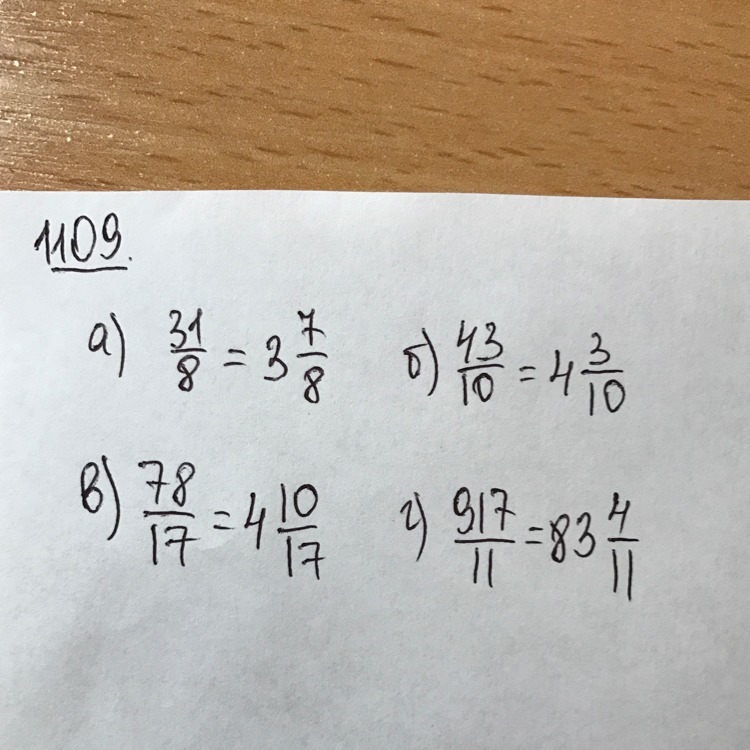 1109.
а) 31/8 = 3 7/8 б) 43/10 = 4 3/10
в) 78/17 = 4 10/17 г) 917/11 = 83 4/11